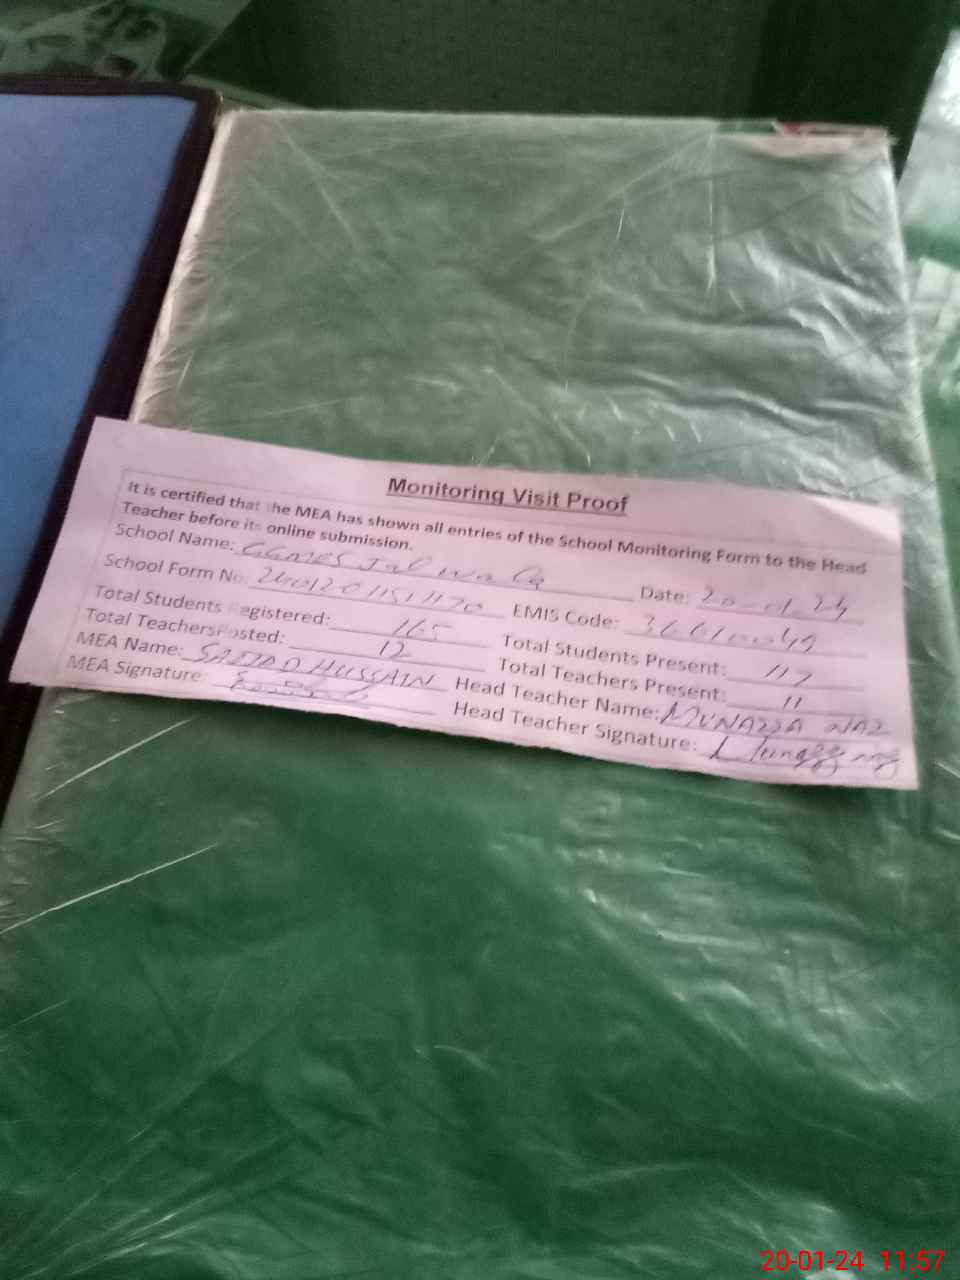 Monitoring Visit Proof
It is certified that the MEA has shown all entries of the School Monitoring Form to the Head
Teacher before its online submission.
School Name: Date: 20-01-24
School Form No EMIS Code:
Total Students Registered: 165 Total Students Present: 117
Total Teachers Posted: 12 Total Teachers Present: 11
MEA Name: SAJJAD HUSSAIN Head Teacher Name: MUNAZZA NAZ
MEA Signature Head Teacher Signature:
20-01-24 11:57